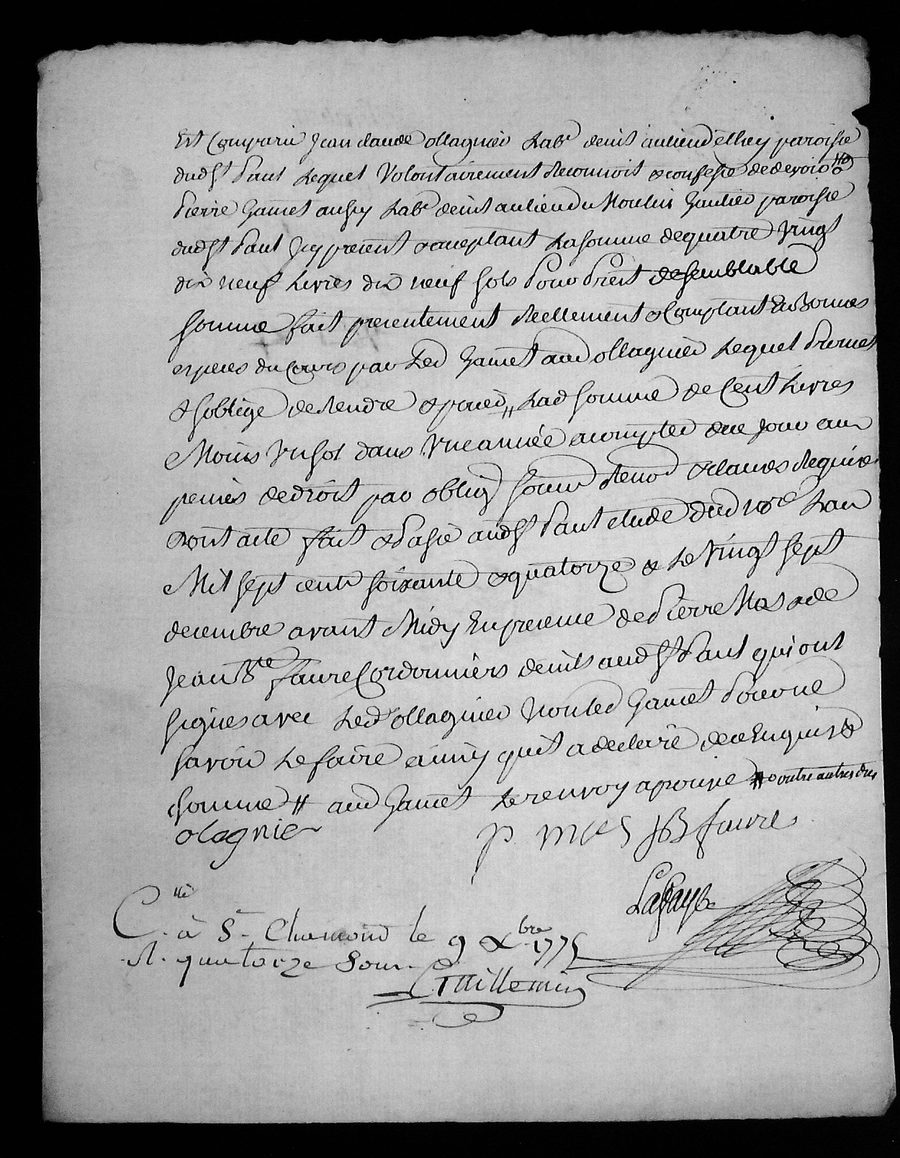 Est Comparu Jean claude ollagnier Lab.r demt au lieu d'elhey paroisse
dud St Paul Lequel Volontairement Reconnoit & confesse de devoir #
Pierre Gamet aussy Lab.r demt au lieu du Moulin Gaulier paroisse
dud St Paul Icy present & aceptant La somme de quatre Vingt
dix neuf Livres dix neuf sols Pour Preit de semblable
somme fait presentement Reellement & Comptant En Bonnes
especes du Cours par Led Gamet aud ollagnier Lequel Promet
& soblige de Rendre & paier // Lad somme de Cent Livres
Moins Un sol dans Une année a compter de ce Jour aux
peines de droit par oblig soum Renon & clauses Requises
Dont acte fait & Passé aud St Paul etude dud Nore Lan
Mil sept cent soixante & quatorze & Le Vingt sept
decembre avant Midy En presence de Pierre Mos & de
Jean Bte faure Cordonniers demts aud St Paul qui ont
signes avec Led ollagnier Non led Gamet Pour ne
savoir Le faire ainsy quil a declaré de ce Enquis &
sommé # aud Gamet Le renvoy aprouve # outre autres dus
olagnier P. mos JB faure
Lafay
C.llé à St Chamond le 9 Xbre 1775
R. quatorze sous
Guillemin